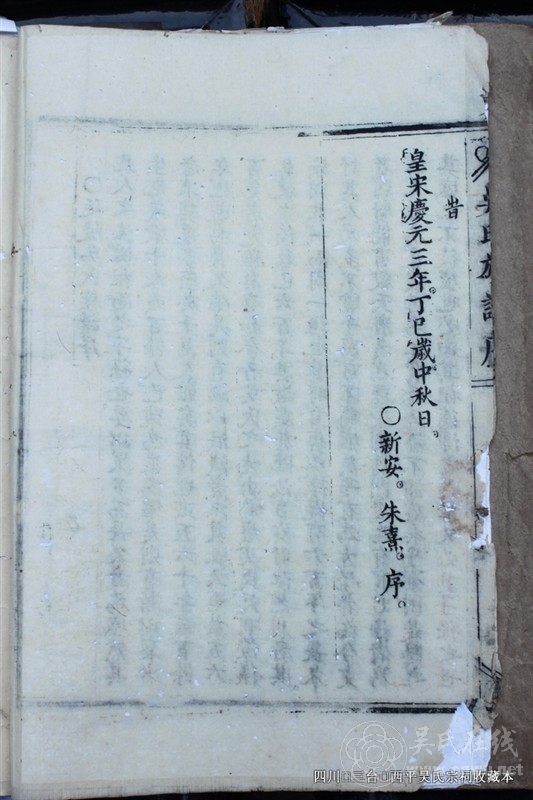 吳氏族譜序
時
皇宋慶元三年丁巳歲中秋日
〇新安。朱熹。序。
吴氏在线
四川□三台□西平吴氏宗祠收藏本